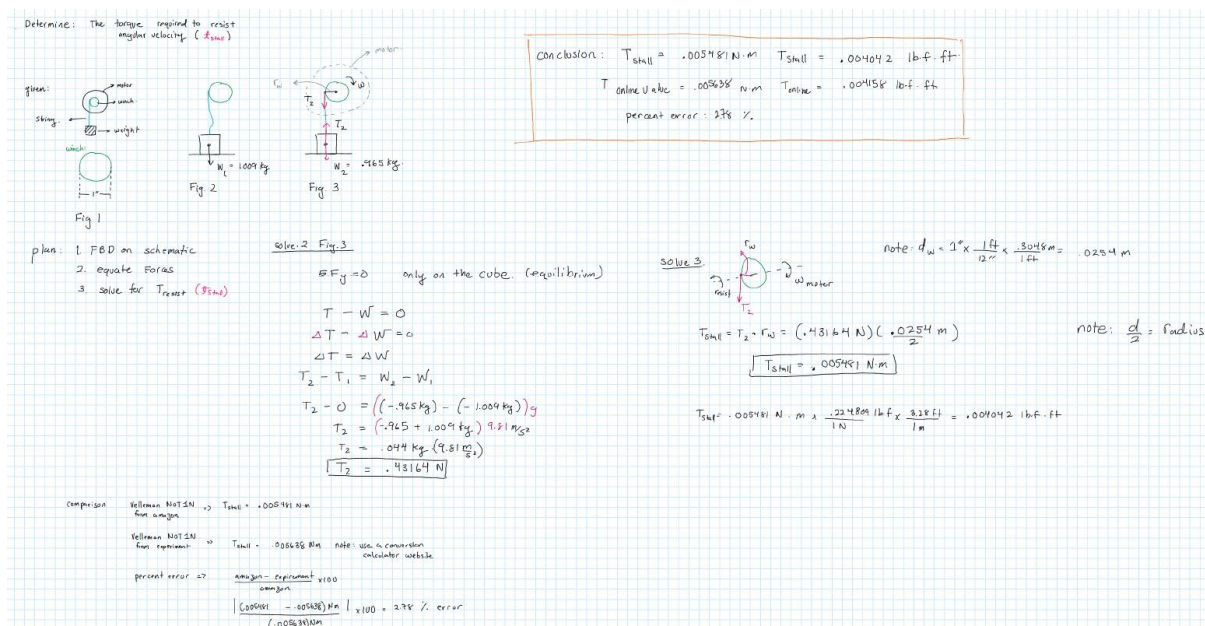 Determine: The torque required to resist
angular velocity (τstall)
given:
motor
winch
string
weight
winch:
1"
Fig 1
W₁ = 1.009 kg
Fig. 2
motor
rw
ω
T₂
T₂
W₂ = .965 kg.
Fig. 3
conclusion: Tstall = .005481 N·m Tstall = .004042 lb·f·ft.
T online Value = .005638 N·m Tonline = .004158 lb·f·ft
percent error: 2.78 %.
plan: 1. FBD on schematic
2. equate Forces
3. solve for Tresist (τstall)
solve.2 Fig.3
ΣFy = 0 only on the cube. (equilibrium)
T - W = 0
ΔT - ΔW = 0
ΔT = ΔW
T₂ - T₁ = W₂ - W₁
T₂ - 0 = ((-.965 kg) - (-1.009 kg))g
T₂ = (-.965 + 1.009 kg) 9.81 m/s²
T₂ = .044 kg (9.81 m/s²)
T₂ = .43164 N
solve 3.
rw
resist
ω motor
T₂
note: dw = 1" × 1 ft/12 in × .3048 m/1 ft = .0254 m
Tstall = T₂ · rw = (.43164 N)(.0254 m/2)
note: d/2 = radius
Tstall = .005481 N·m
Tstall = .005481 N·m × .224809 lbf/1N × 3.28 ft/1m = .004042 lb·f·ft
Comparison Velleman MOT1N => Tstall = .005481 N·m
from amazon
Velleman MOT1N => Tstall = .005638 Nm note: use a conversion
from experiment calculator website
percent error => amazon - expirement/amazon × 100
|(.005481 - .005638) Nm/(.005638) Nm| × 100 = 2.78 % error